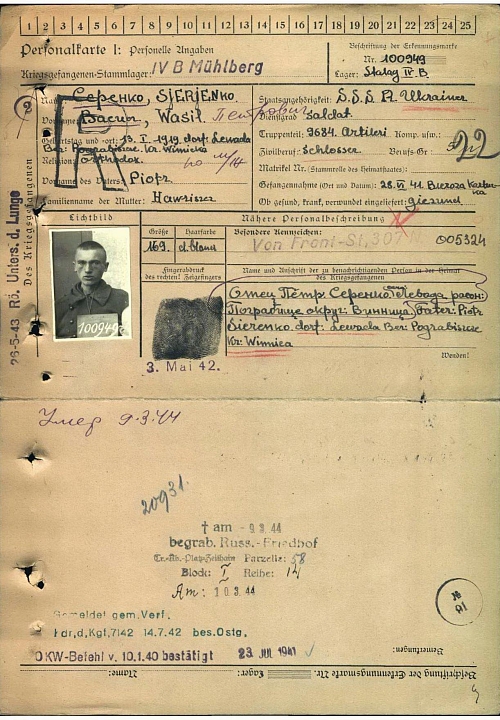 1 2 3 4 5 6 7 8 9 10 11 12 13 14 15 16 17 18 19 20 21 22 23 24 25
Personalkarte I: Personelle Angaben
Kriegsgefangenen-Stammlager: IV B Mühlberg
Beschriftung der Erkennungsmarke
Nr. 100949
Lager: Stalag IV B
Серенко, SJERJENKO
Staatsangehörigkeit: S.S.S.R. Ukrainer
Wasil Петрович
Dienstgrad: Soldat
Geburtstag und -ort: 13. I. 1919 dorf. Lewada
Truppenteil: 9634. Artileri Komp. usw.:
Ber: Pograbiszce Kr. Winnica
Zivilberuf: Schlosser Berufs-Gr.: 22
Religion: orthodox.
Matrikel Nr. (Stammrolle des Heimatstaates):
Vorname des Vaters: Piotr
Gefangennahme (Ort und Datum): 28. VI 41.
Familienname der Mutter:
Ob gesund, krank, verwundet eingeliefert:
26-5-43 Rö. Unters. d. Lunge
Des Kriegsgefangenen
Lichtbild
Nähere Personalbeschreibung
Größe Haarfarbe Besondere Kennzeichen:
169. d.blond
Von Front-St. 307
005324
Fingerabdruck
des rechten! Zeigefingers
Name und Anschrift der zu benachrichtigenden Person in der Heimat
des Kriegsgefangenen
100949
Отец Петр Серенко
округ: Винница. Fater: Piotr
dorf. Lewada Ber: Pograbiszce
Kr: Winnica
3. Mai 42.
Wenden!
Умер 9.3.44
20931.
† am - 9 3. 44
begrab. Russ.-Friedhof
Tr.-Üb.-Platz-Zeithain Parzelle: 58
Block: I Reihe: 14
Am: 10 3. 44
Gemeldet gem. Verf.
Kdr.d.Kgf. 7142 14.7.42 bes.Ostg.
OKW-Befehl v. 10.1.40 bestätigt 23. JUL 1941
Bemerkungen:
Beschriftung der Erkennungsmarke Nr.
Lager:
Name: